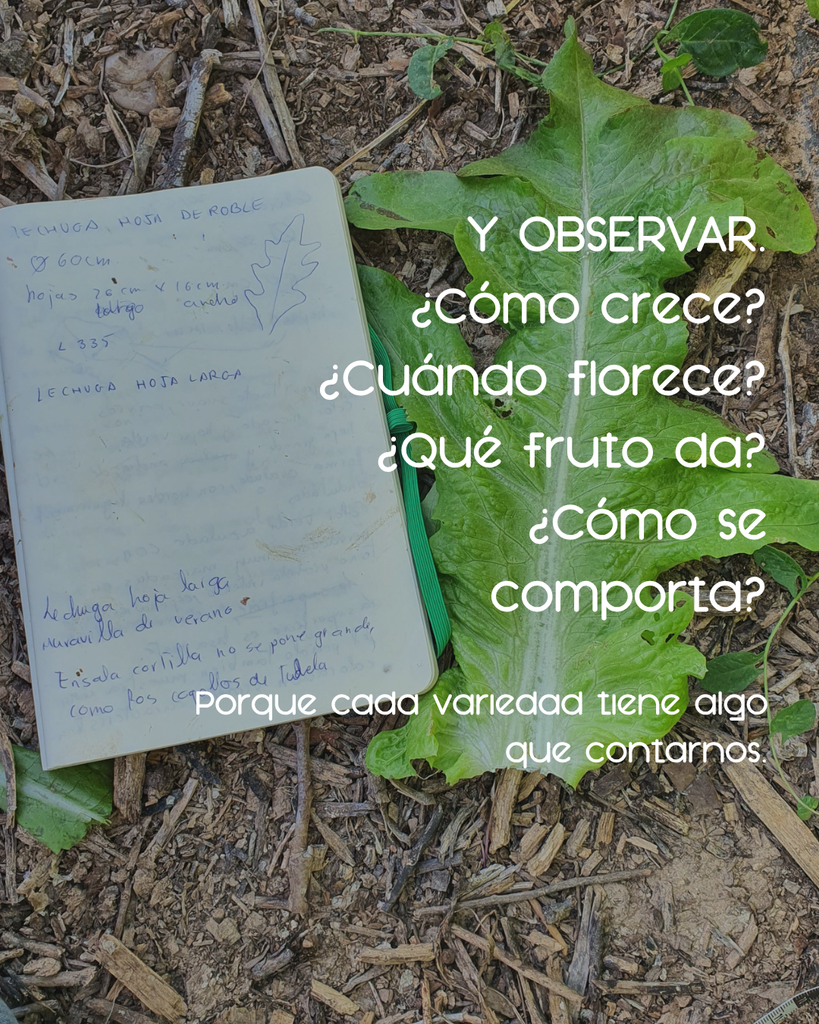 LECHUGA HOJA DE ROBLE
Ø 60cm
hojas 26cm x 16cm
largo ancho
L 335
LECHUGA HOJA LARGA
Lechuga hoja larga
Maravilla de verano
Ensala cortilla no se pone grande,
como los cogollos de Tudela
Y OBSERVAR.
¿Cómo crece?
¿Cuándo florece?
¿Qué fruto da?
¿Cómo se
comporta?
Porque cada variedad tiene algo
que contarnos.